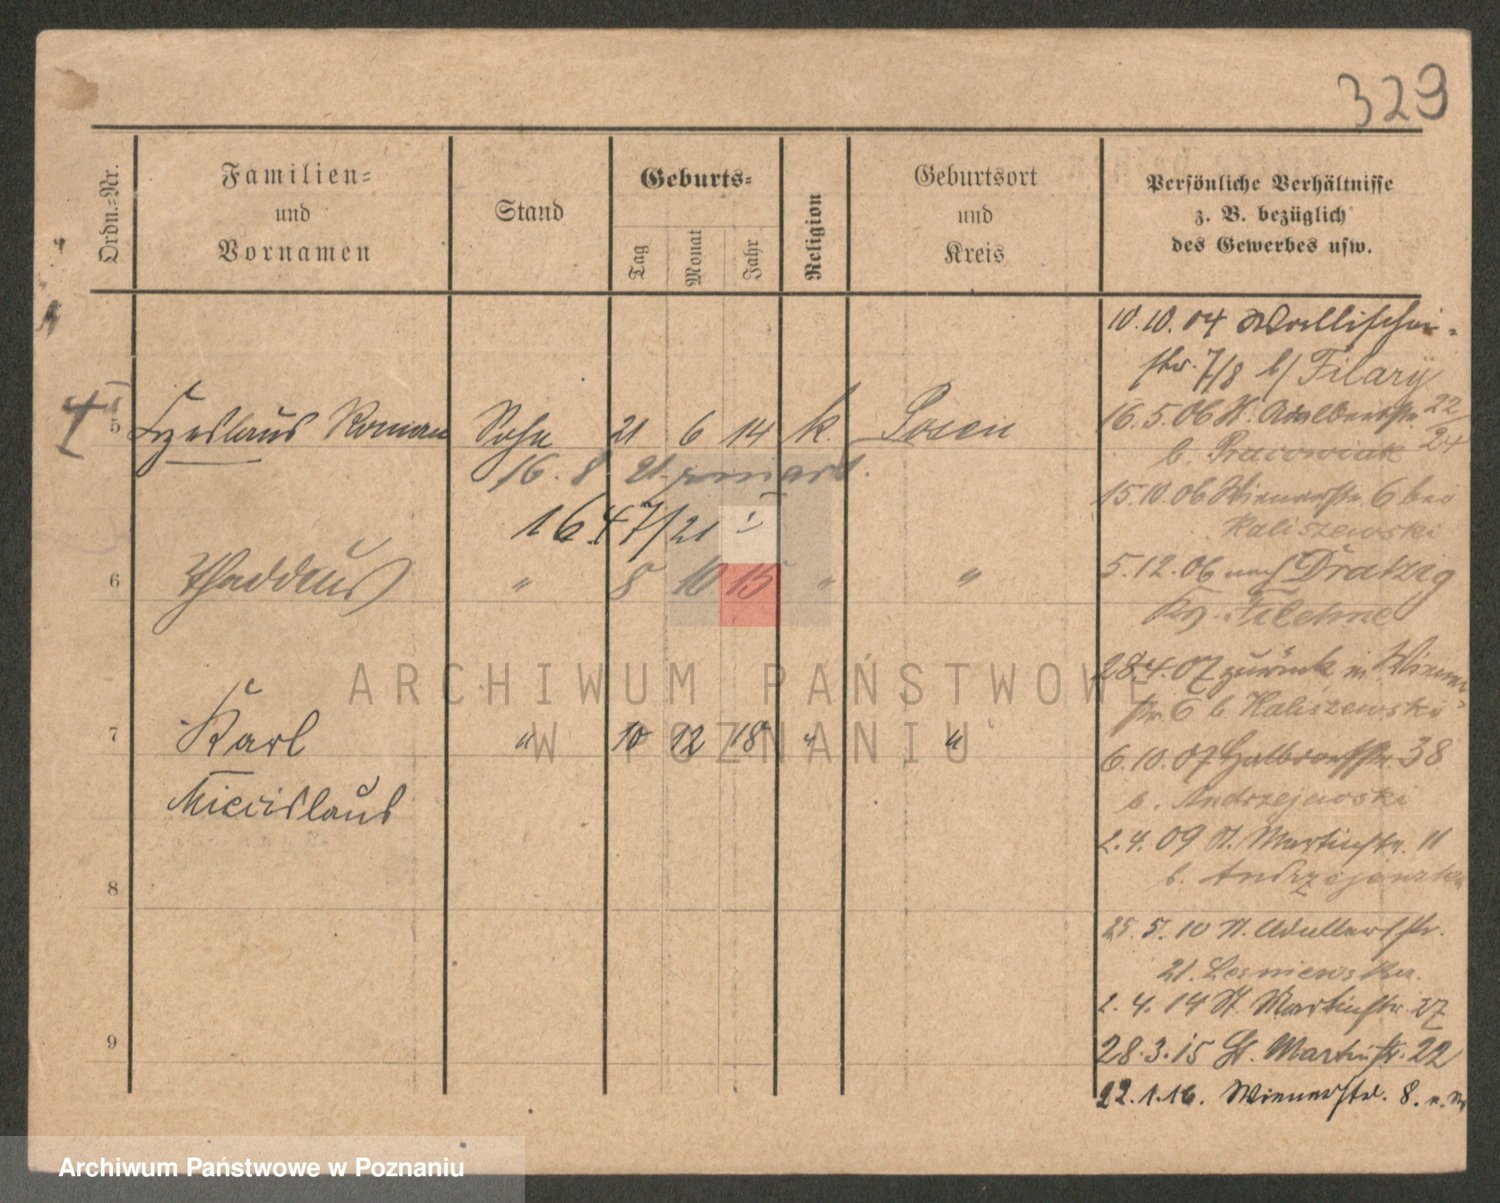 329
Ordn.=Nr.
Familien=
und
Vornamen
Stand
Geburts=
Tag
Monat
Jahr
Religion
Geburtsort
und
Kreis
Persönliche Verhältnisse
z. B. bezüglich
des Gewerbes usw.
10.10.04 Wallischei-
str. 7/8 b/ Filary
5 Czeslaus Roman Sohn 21 6 14 k. Posen
16.5.06 St. Adalbertstr. 22/24
16. 8 21
1647/21
15.10.06 Wienerstr. 6 bei
Kaliszewski
6 Thaddäus " 8 10 15 " "
5.12.06 nach Dratzig
Kr. Filehne
28.4.07 zurück in Wiener
str. 6 b Kaliszewski
7 Karl " 10 12 18 " "
Miecislaus
6.10.07 38
b. Andrzejewski
2.4.09 St. Martinstr. 11
b.
8
25.5.10 St. Adalbertstr.
21.
2.4.14 St. Martinstr. 27
9
28.3.15 St. Martinstr. 22
22.1.16. Wienerstr. 8.
ARCHIWUM PAŃSTWOWE
W POZNANIU
Archiwum Państwowe w Poznaniu